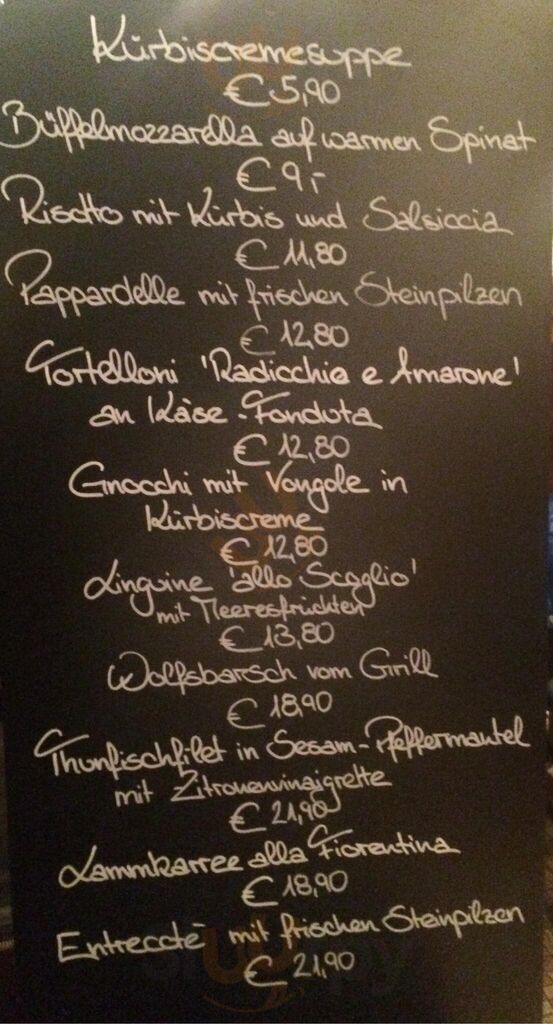 Kürbiscremesuppe
€ 5,90
Büffelmozzarella auf warmen Spinat
€ 9,-
Risotto mit Kürbis und Salsiccia
€ 11,80
Pappardelle mit frischen Steinpilzen
€ 12,80
Tortelloni 'Radicchio e Amarone'
an Käse-Fonduta
€ 12,80
Gnocchi mit Vongole in
Kürbiscreme
€ 12,80
Linguine 'allo Scoglio'
mit Meeresfrüchten
€ 13,80
Wolfsbarsch vom Grill
€ 18,90
Thunfischfilet in Sesam-Pfeffermantel
mit Zitronenvinaigrette
€ 21,90
Lammkarree alla Fiorentina
€ 18,90
Entrecotè mit frischen Steinpilzen
€ 21,90